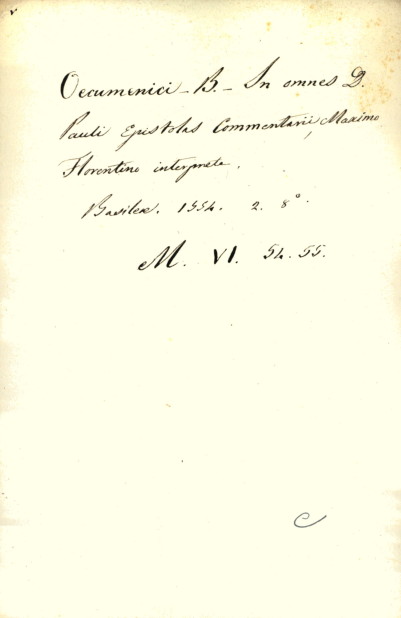 Oecumenici - B. - In omnes D.
Pauli Epistolas Commentarii, Maximo
Florentino interprete.
Basileæ. 1554. 2. 8°.
M. VI. 54. 55.
C